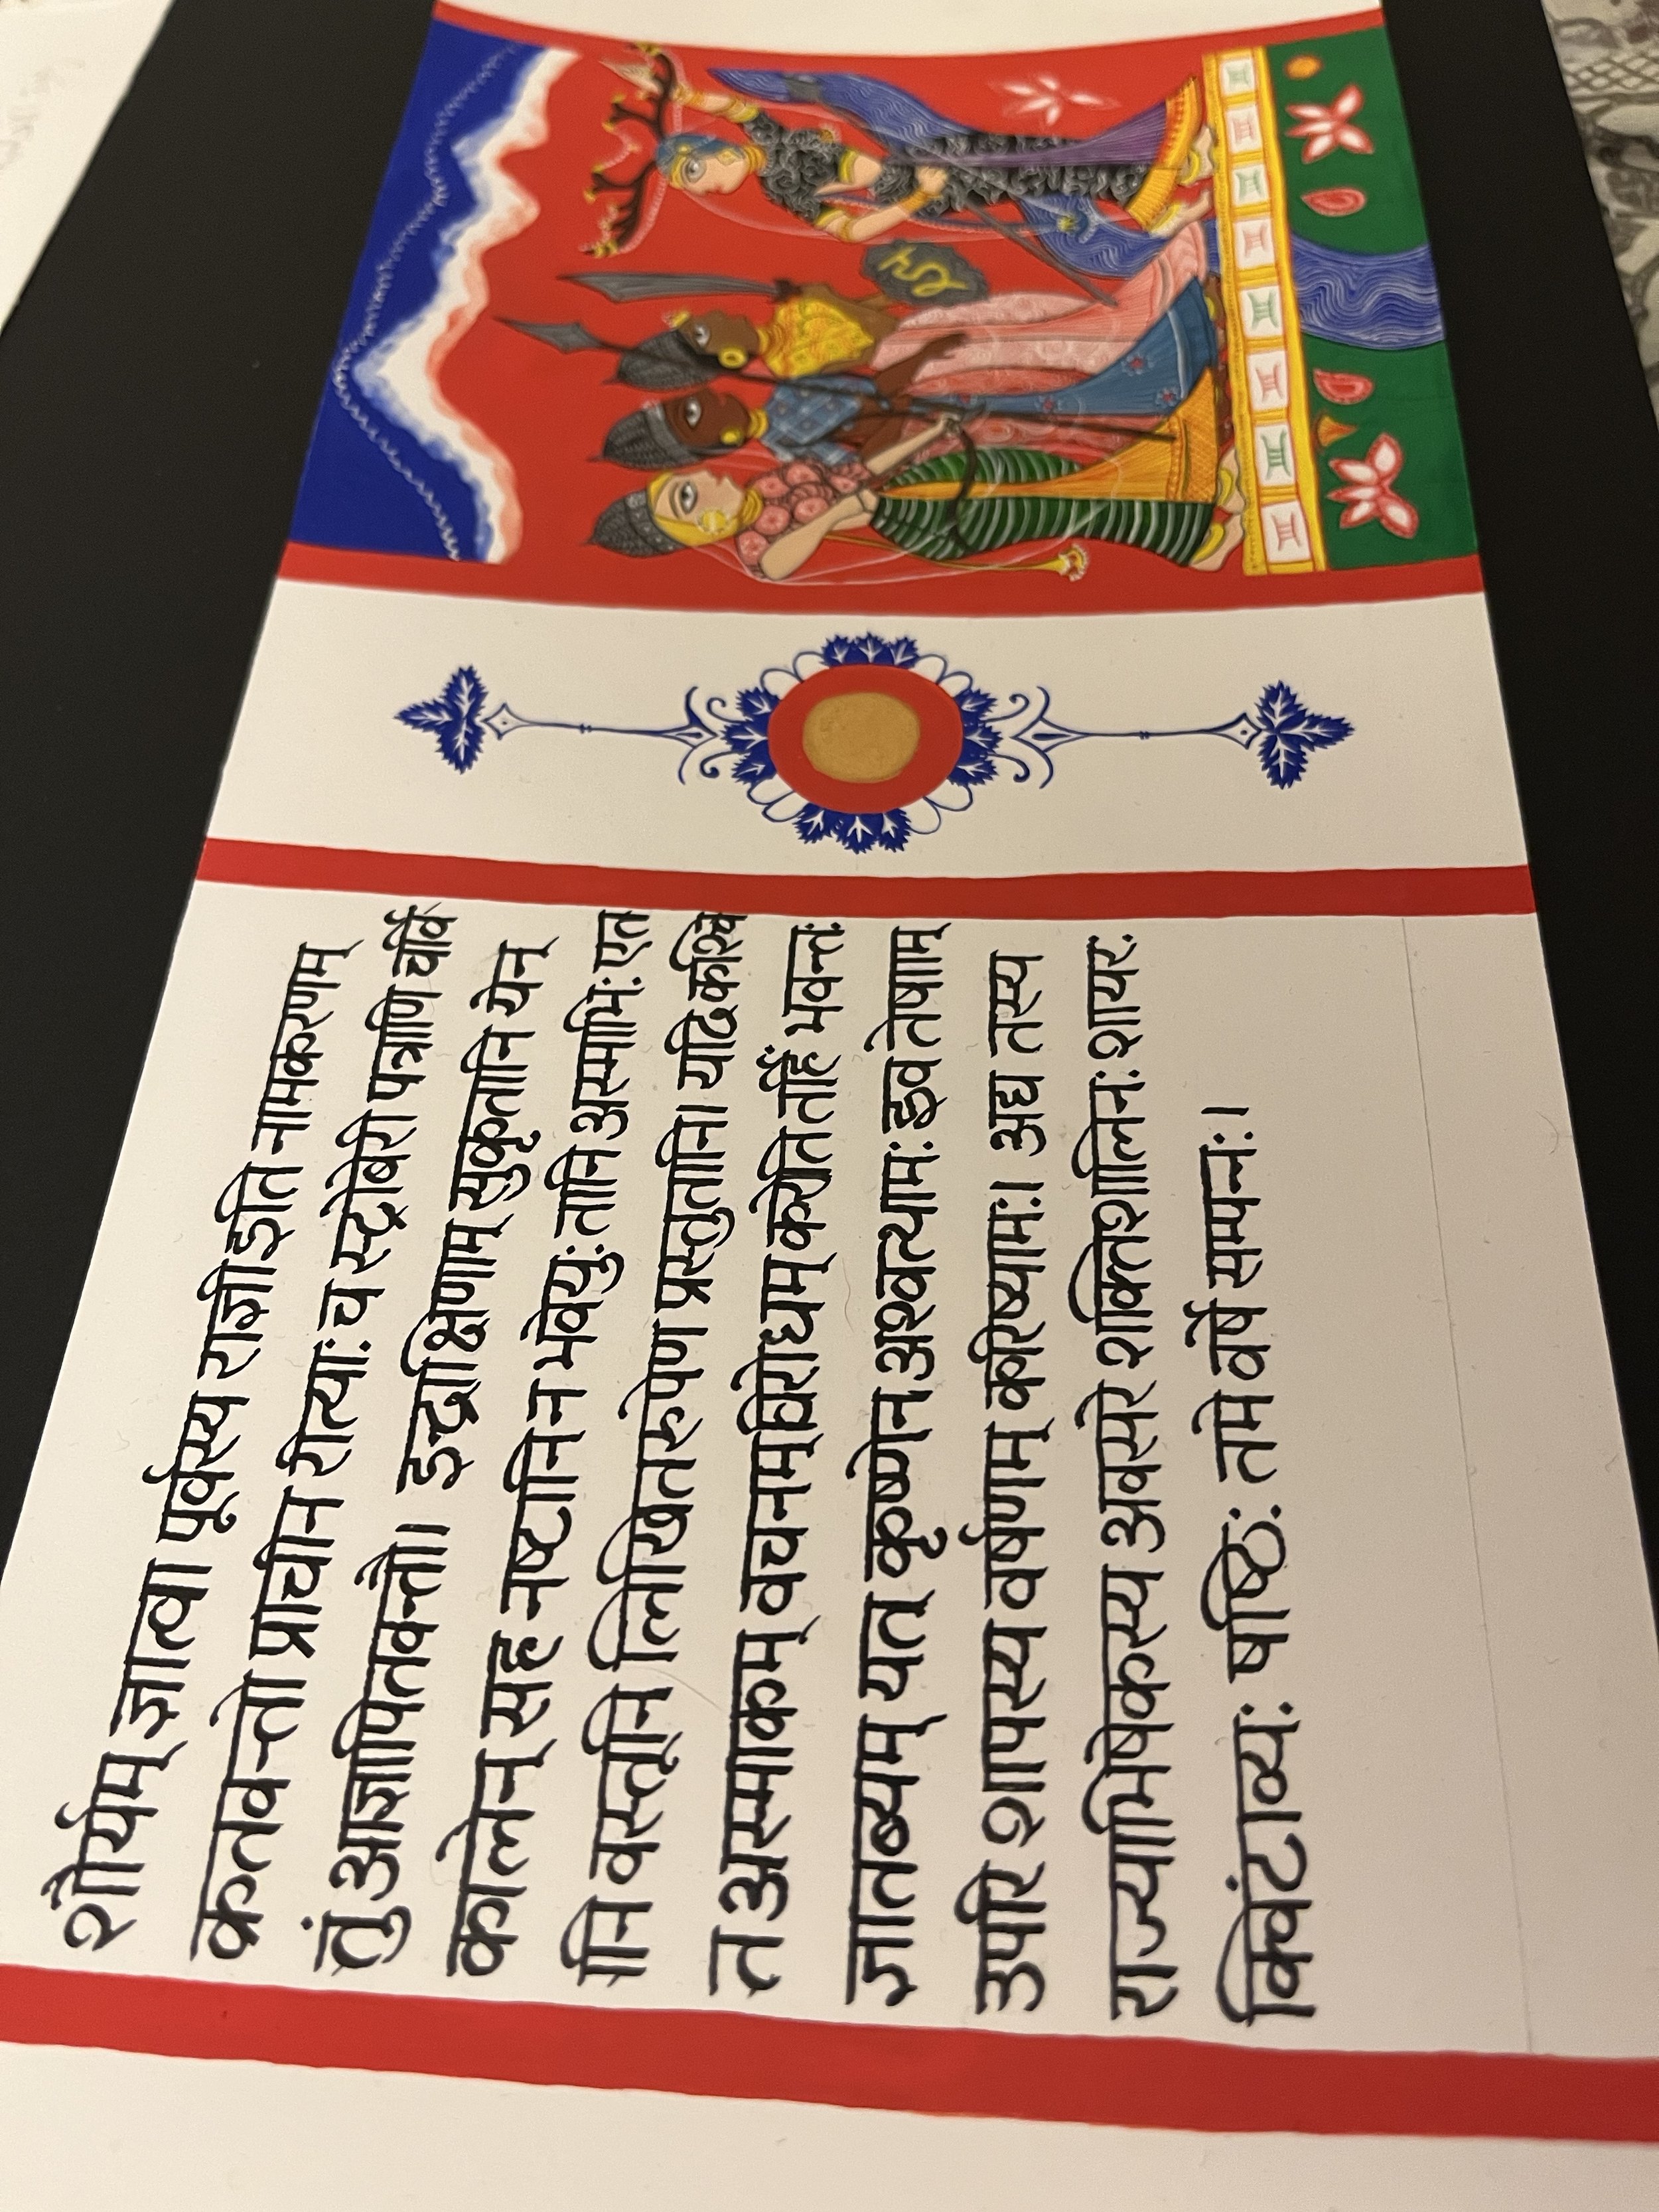 शौर्यम् ज्ञात्वा पूर्वस्य राज्ञी इति नामकरणम्
क्रतवन्तो प्राचीन रीत्याः च स्ट्रोबेरी पत्राणि चर्वि
तुं आज्ञापितवन्तौ। इन्द्राक्षिणाम् सुकृतानि येन
कालेन् सह नष्टानि न भवेयुः तानि अस्माभिः एत
नि वस्तूनि लिखितरुपेण प्रस्तुतानि। यदि कश्चि
त अस्माकम् वचनम् विरोधम् करोति तर्हि भवन्तः
ज्ञातब्यम् यत् कृष्णेन् अश्वत्थामः इव तेषाम्
उपरि शापस्य वर्षणम् करिष्यामः। अद्य तस्य
राज्याभिषेकस्य अवसरे शक्तिशालिनः शायरः
क्विंटाव्यः षष्ठिः तमे वर्षे सम्पनः।